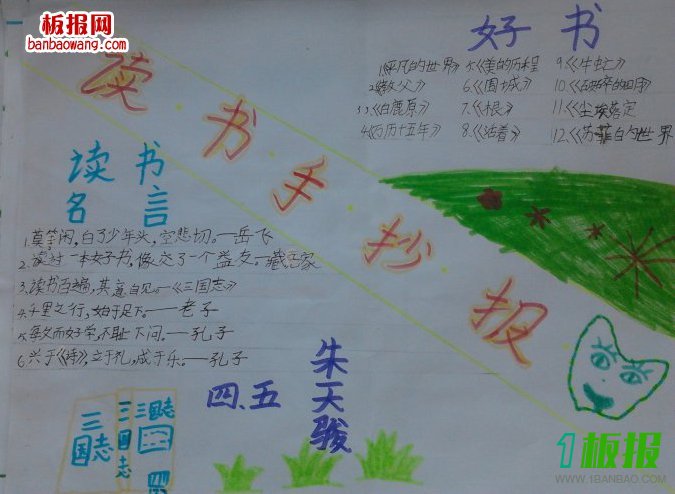 板报网
banbaowang.com
好书
1.《平凡的世界》 5.《美的历程 9.《牛虻》
2.《教父》 6.《围城》 10.《破碎的四月》
3.《白鹿原》 7.《根》 11.《尘埃落定
4.《万历十五年》 8.《活着》 12.《苏菲的世界
读书手抄报
读书
名言
1.莫等闲,白了少年头,空悲切。—岳飞
2.读过一本好书,像交了一个益友。—臧克家
3.读书百遍,其意自见。—《三国志》
4.千里之行,始于足下。—老子
5.敏而好学,不耻下问。—孔子
6.兴于《诗》,立于礼,成于乐。—孔子
四、五
朱天骏
三国志
三国志
三国志
1板报
WWW.1BANBAO.COM